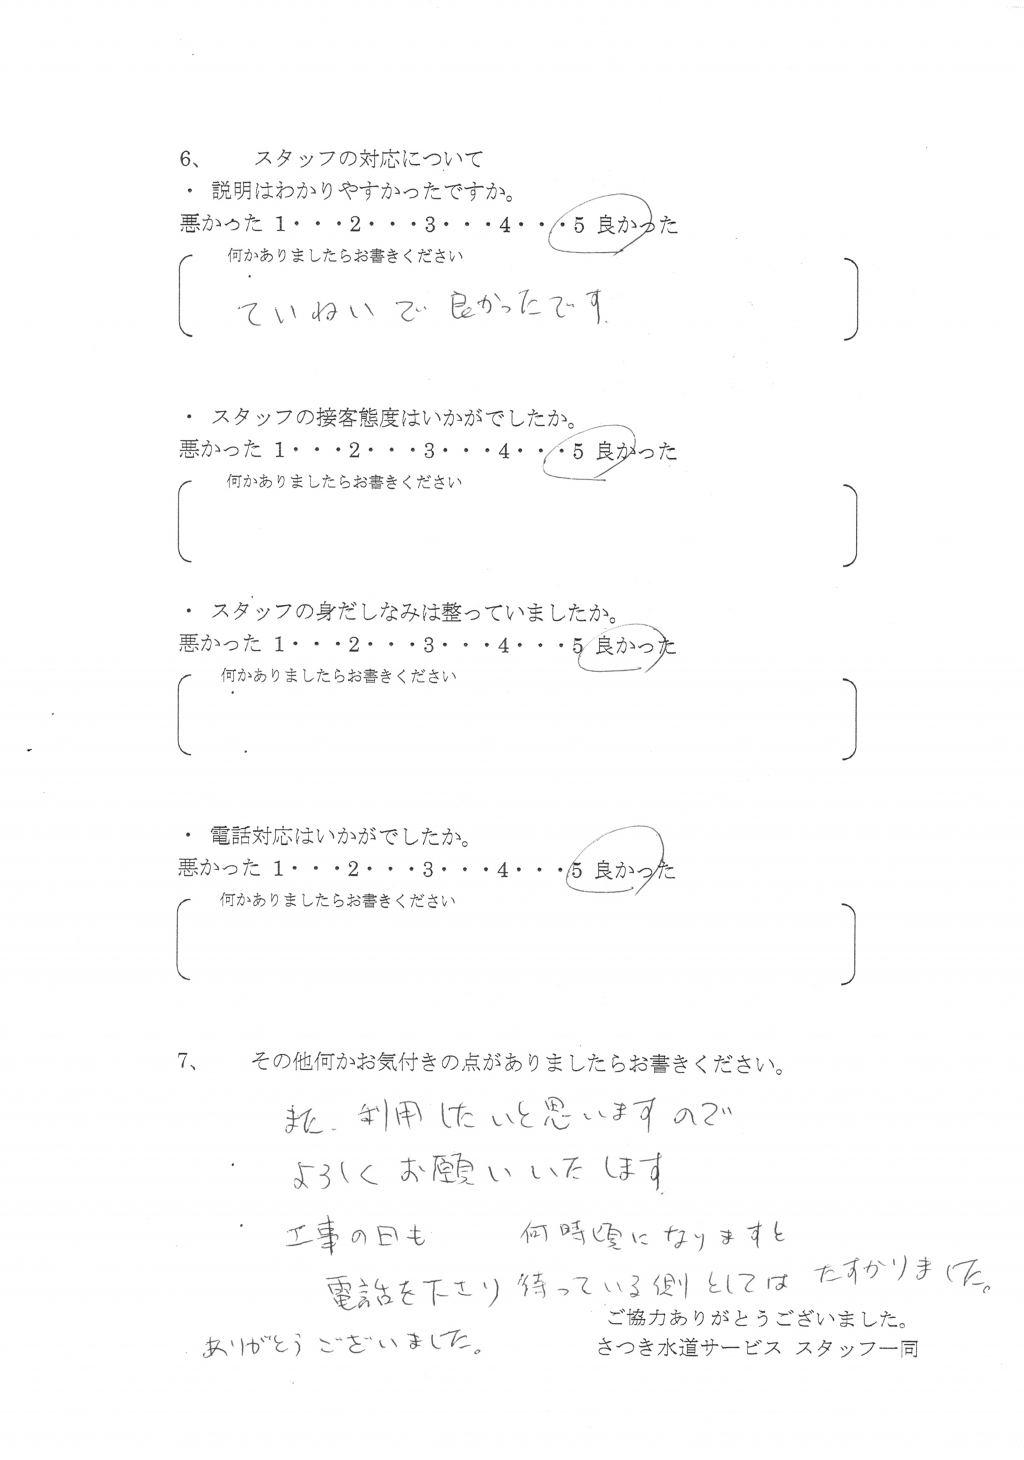 6、　スタッフの対応について
・ 説明はわかりやすかったですか。
悪かった 1・・・2・・・3・・・4・・・5 良かった
何かありましたらお書きください
ていねいで良かったです.
・ スタッフの接客態度はいかがでしたか。
悪かった 1・・・2・・・3・・・4・・・5 良かった
何かありましたらお書きください
・ スタッフの身だしなみは整っていましたか。
悪かった 1・・・2・・・3・・・4・・・5 良かった
何かありましたらお書きください
・ 電話対応はいかがでしたか。
悪かった 1・・・2・・・3・・・4・・・5 良かった
何かありましたらお書きください
7、　その他何かお気付きの点がありましたらお書きください。
また、利用したいと思いますので
よろしくお願いいたします
工事の日も　何時頃になりますと
電話を下さり待っている側としてはたすかりました。
ご協力ありがとうございました。
ありがとうございました。
さつき水道サービス スタッフ一同